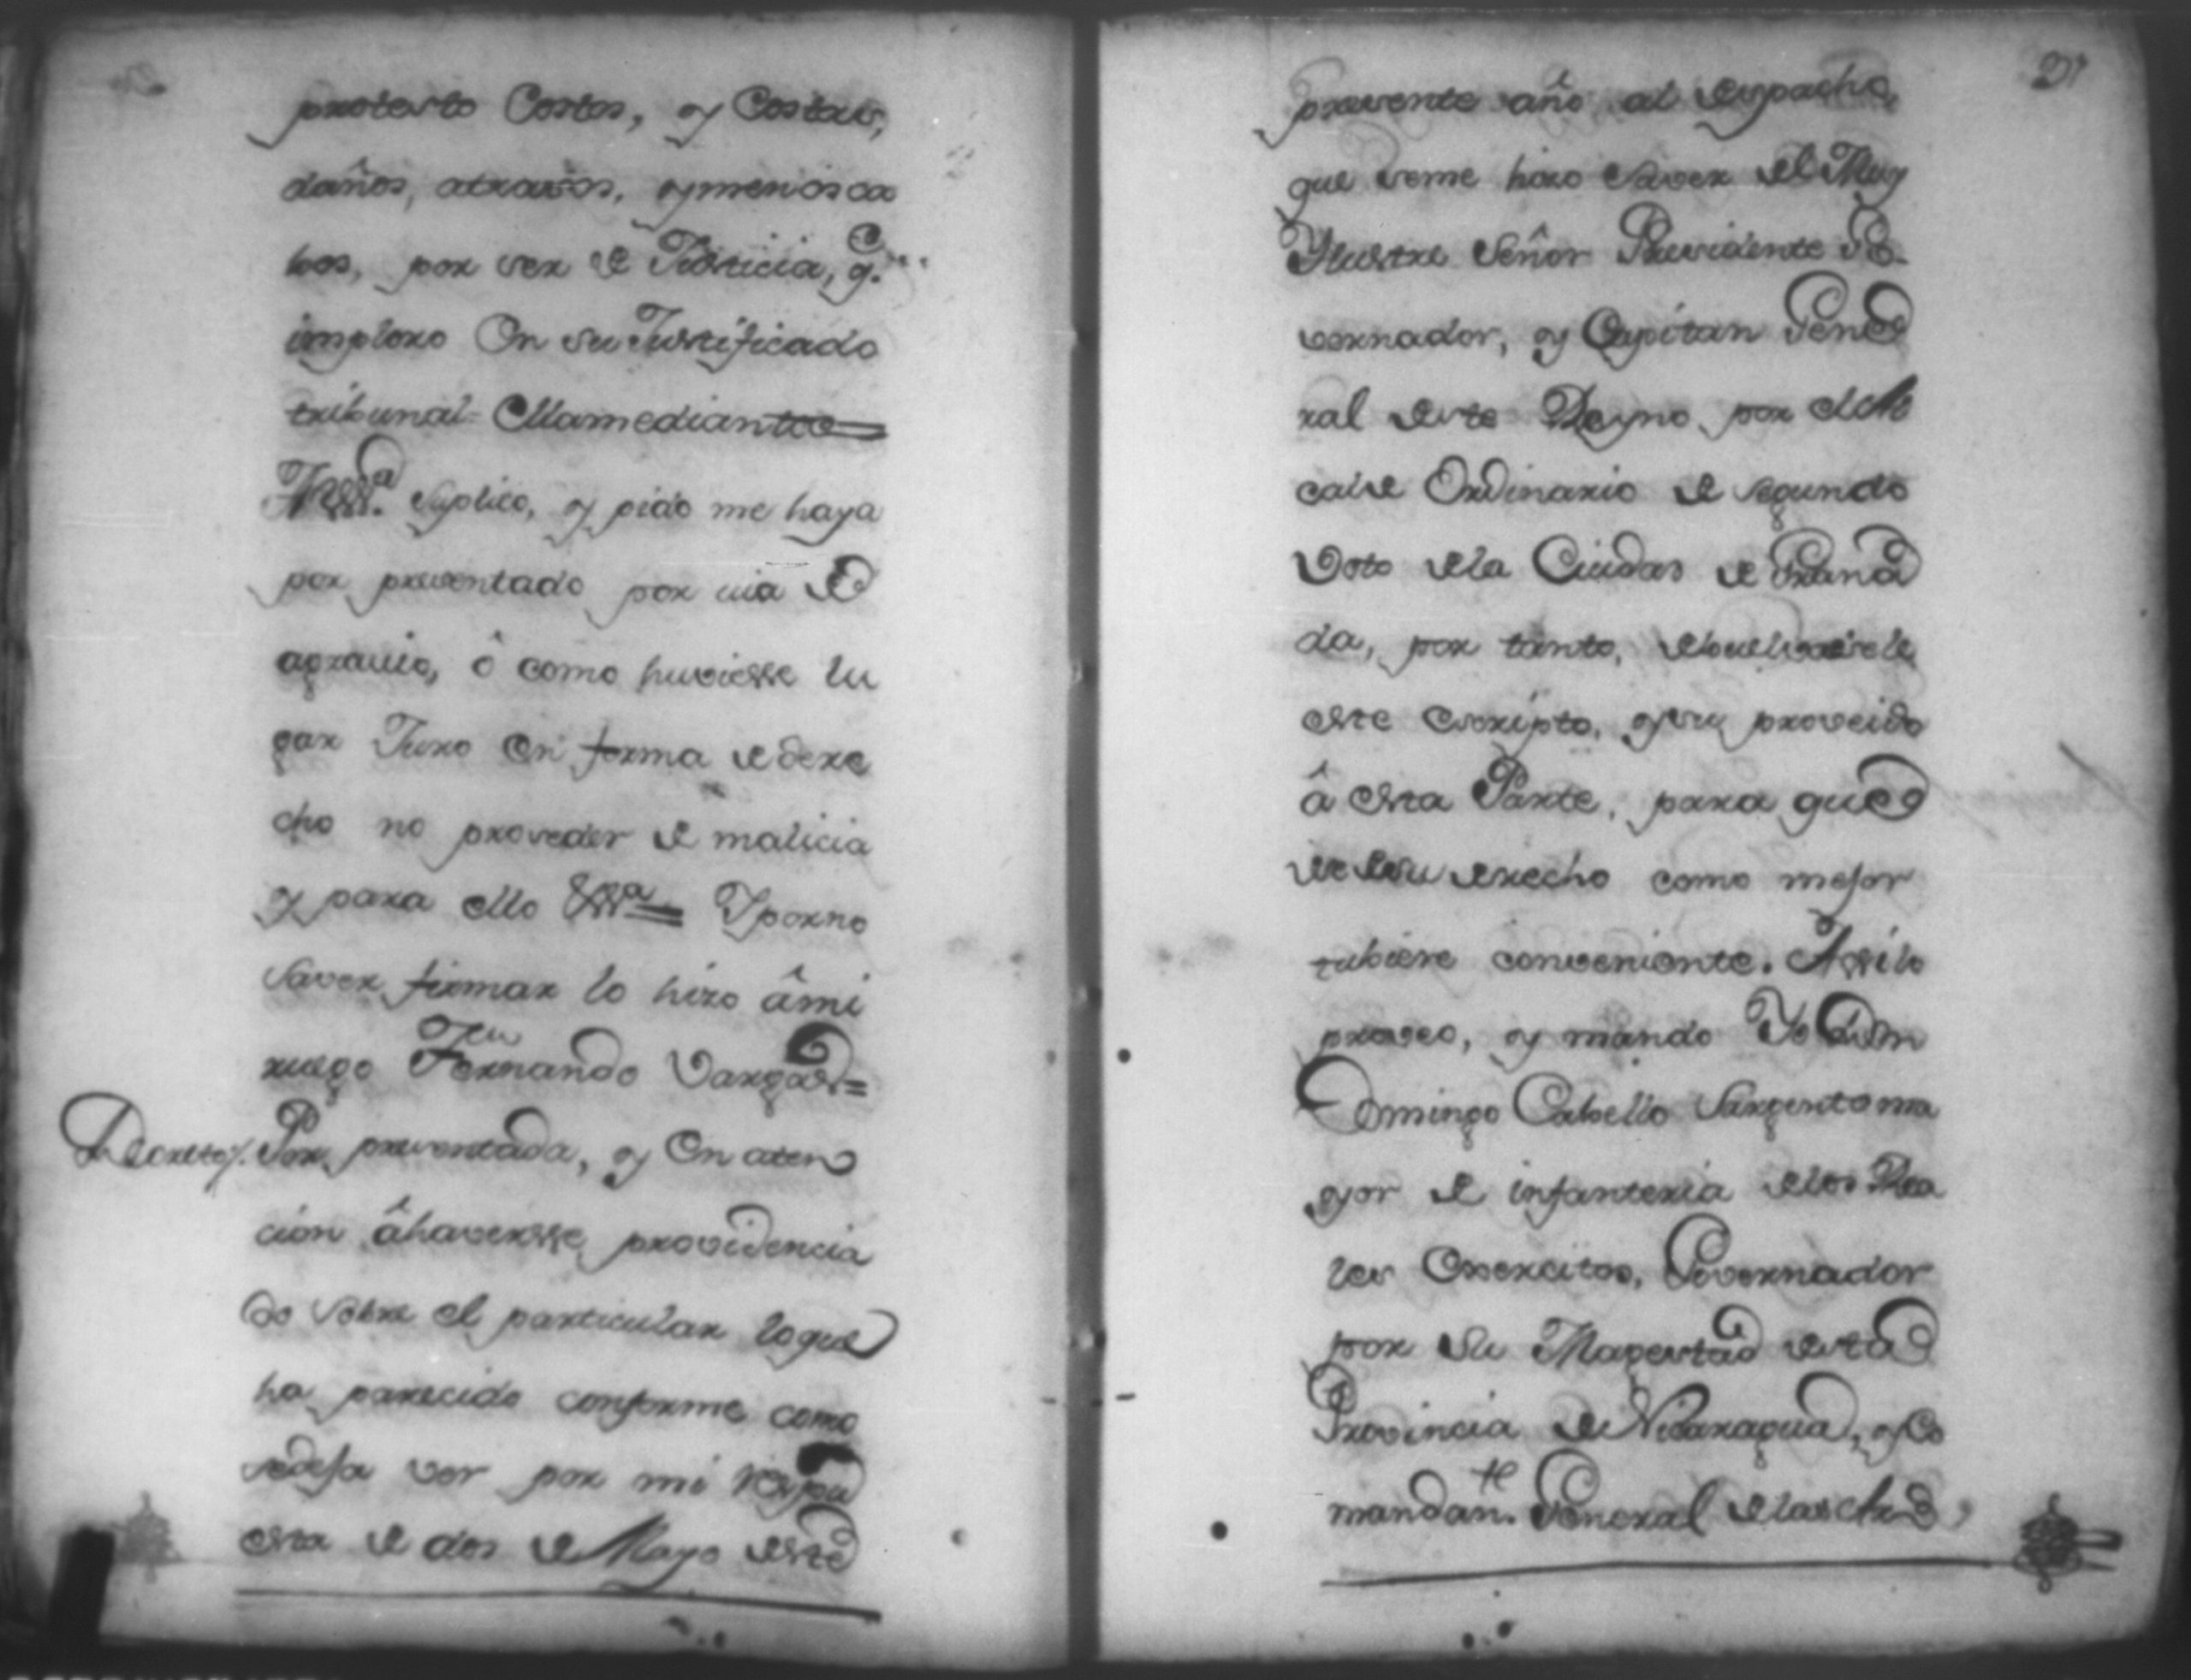 protesto Costos, y Costas,
daños, atrasos, y menosca
bos, por ser de Justicia, q.e
imploro En su Justificado
tribunal Mamediante=
A VSSa. Suplico, y pido me haya
por presentado por uia de
agrauio, ô como huviesse lu
gar Juro En forma de dere
cho no proceder de malicia
y para ello VSSa= Y por no
saver firmar lo hizo â mi
ruego Fernando Vargas=
Decreto/. Por presentada, y En aten
cion â haversse providencia
do sobre el particular lo que
ha parecido conforme como
se deja ver por mi respu
esta de dos de Mayo deste
21
presente año al despacho,
que se me hizo saver del Muy
Ylustre Señor Presidente Go
vernador, y Capitan Gene
ral deste Reyno, por el Al
calde Ordinario de segundo
Voto de la Ciudad de Grana
da, por tanto, debuelvasele
este escripto, y su proveido
â esta Parte, para que
use de su derecho como mejor
tubiere conveniente. Assi lo
proveo, y mando Yo Don
Domingo Cabello Sargento ma
yor de infanteria de los Rea
les Exercitos, Governador
por Su Magestad desta
Provincia de Nicaragua, y Co
mandan.te General de las Ar